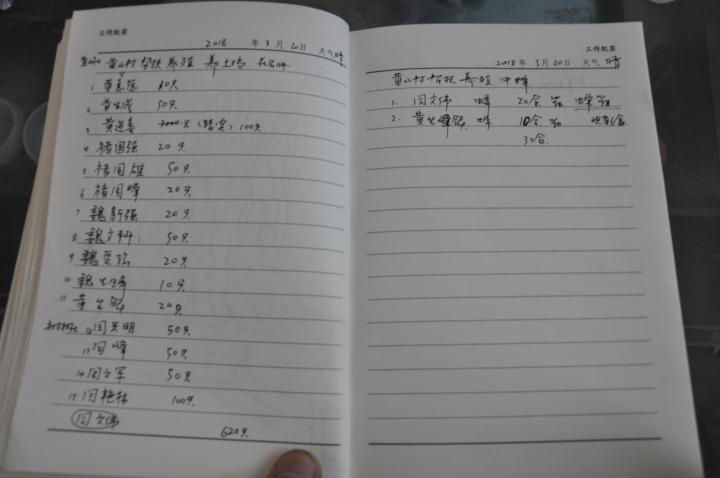 工作纪实
2018 年 3 月 20日 天气 晴
黄山村 帮扶 养殖 养土鸡 花名册
1 黄 80只
2 黄生成 50只
3 黄进喜 只(暂定) 100只
4 褚国强 20只
5 褚国雄 50只
6 褚国峰 20只
7 魏新强 20只
8 魏文科 50只
9 魏 20只
10 魏生峰 10只
11 黄生 20只
12 闫关明 50只
13 闫峰 50只
14 闫文军 50只
15 闫艳林 100只
闫文伟
620只
工作纪实
2018 年 3 月 20日 天气 晴
黄山村帮扶 养殖 中蜂
1. 闫文伟 蜂 20合 蜂箱
2. 黄生 蜂 10合
30合.